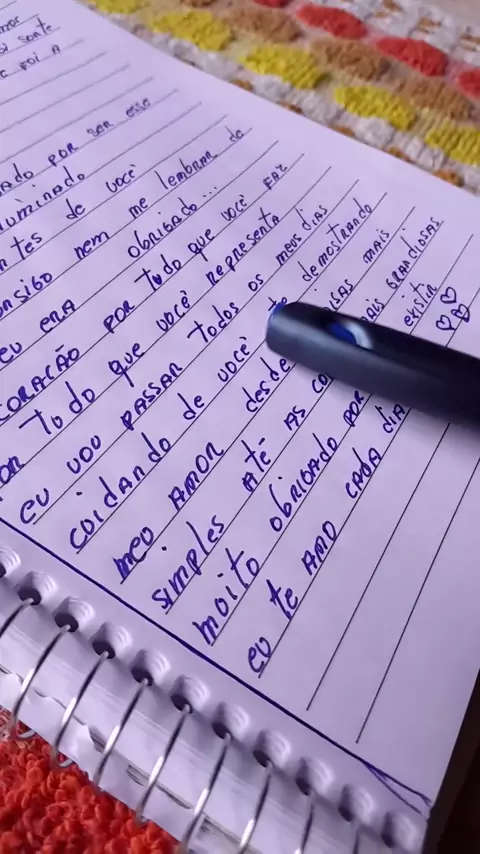 sorte
e foi a
por ser esse
iluminado
de você
nem me lembrar de
eu era obrigado...
coração por tudo que você faz
tudo que você representa
eu vou passar todos os meus dias
cuidando de você demostrando
meu amor desde mais
simples até as mais grandiosas
muito obrigado por existir
eu te amo cada dia